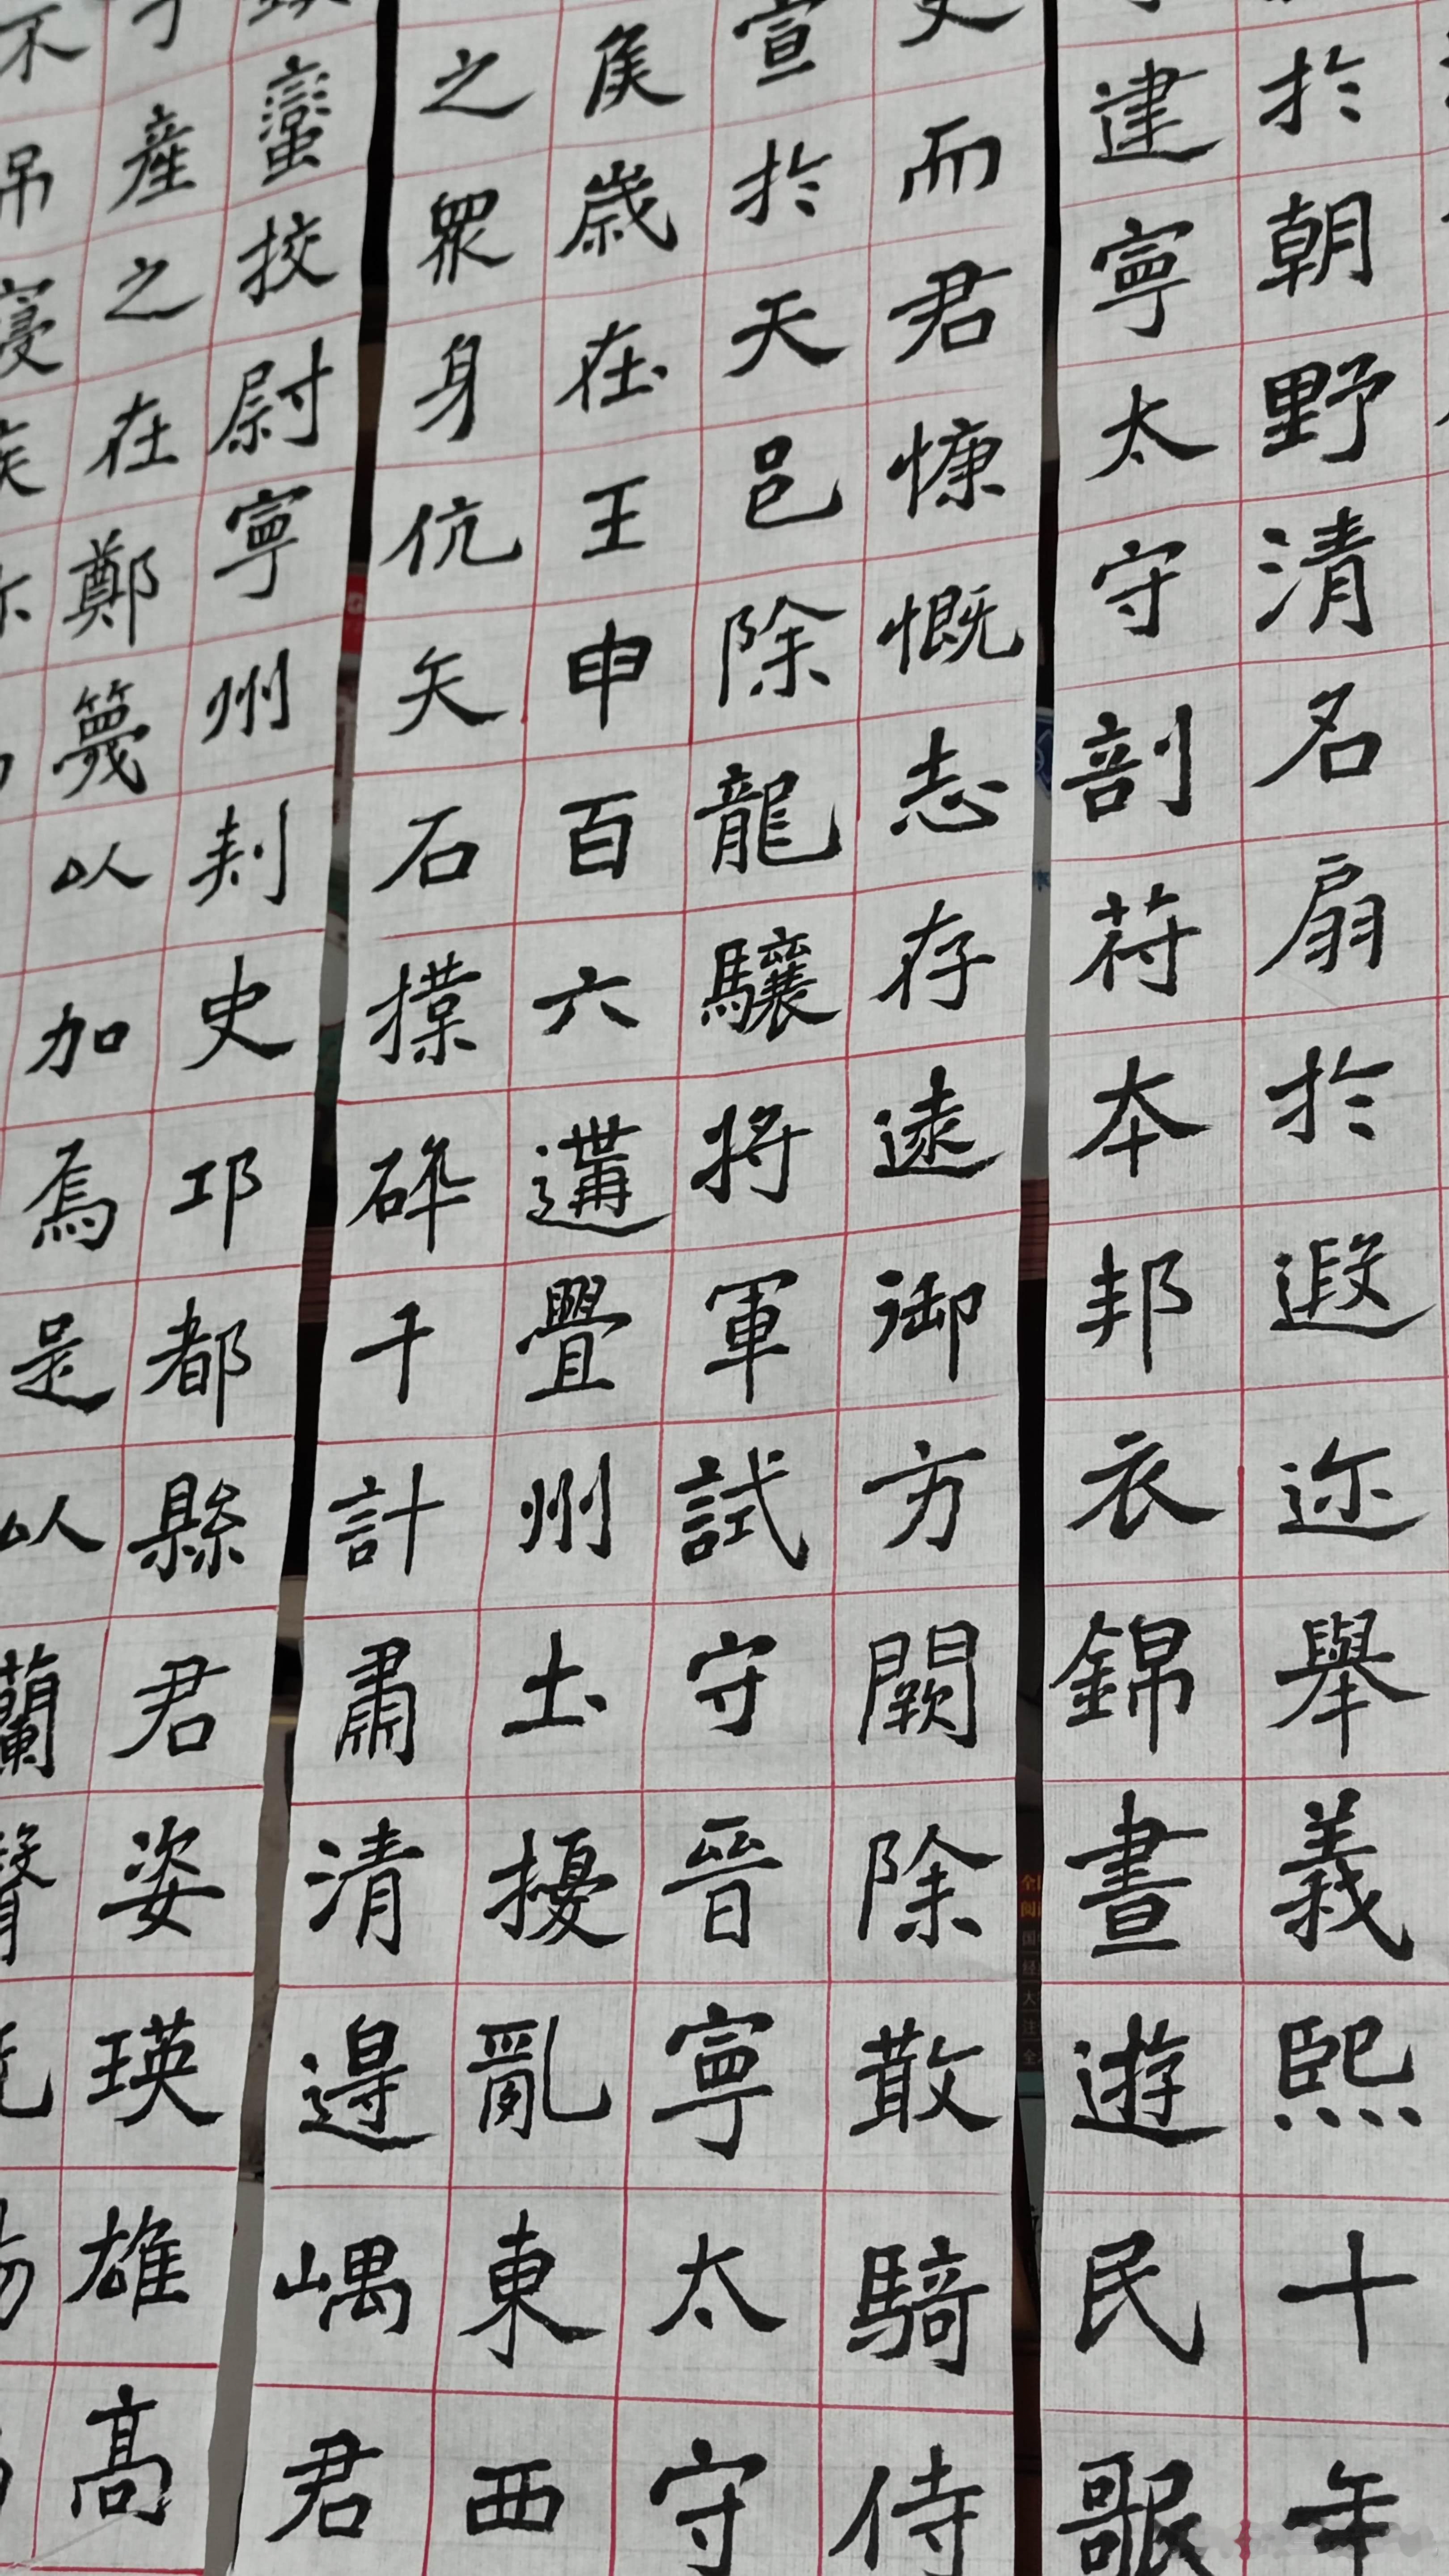 於朝野清名扇於遐迩舉義熙十年
建寧太守剖苻本邦衣錦晝遊民歌
史而君慷慨志存遠御方闕除散騎侍
宣於天邑除龍驤將軍試守晉寧太守
侯歲在王申百六遘舋州土擾亂東西
之眾身伉矢石撲碎千計肅清邊嵎君
蠻挍尉寧州刾史邛都縣君姿瑛雄高
產之在鄭篾以加焉是以蘭聲
不弔寢疾弥